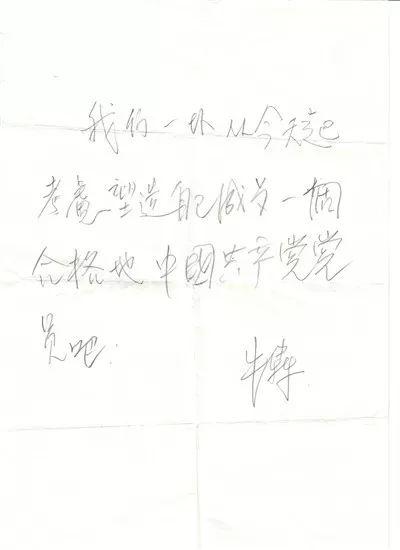 我们一块从今天起
考慮塑造自己成为一個
合格地中國共产党党
员吧.
牛犇.